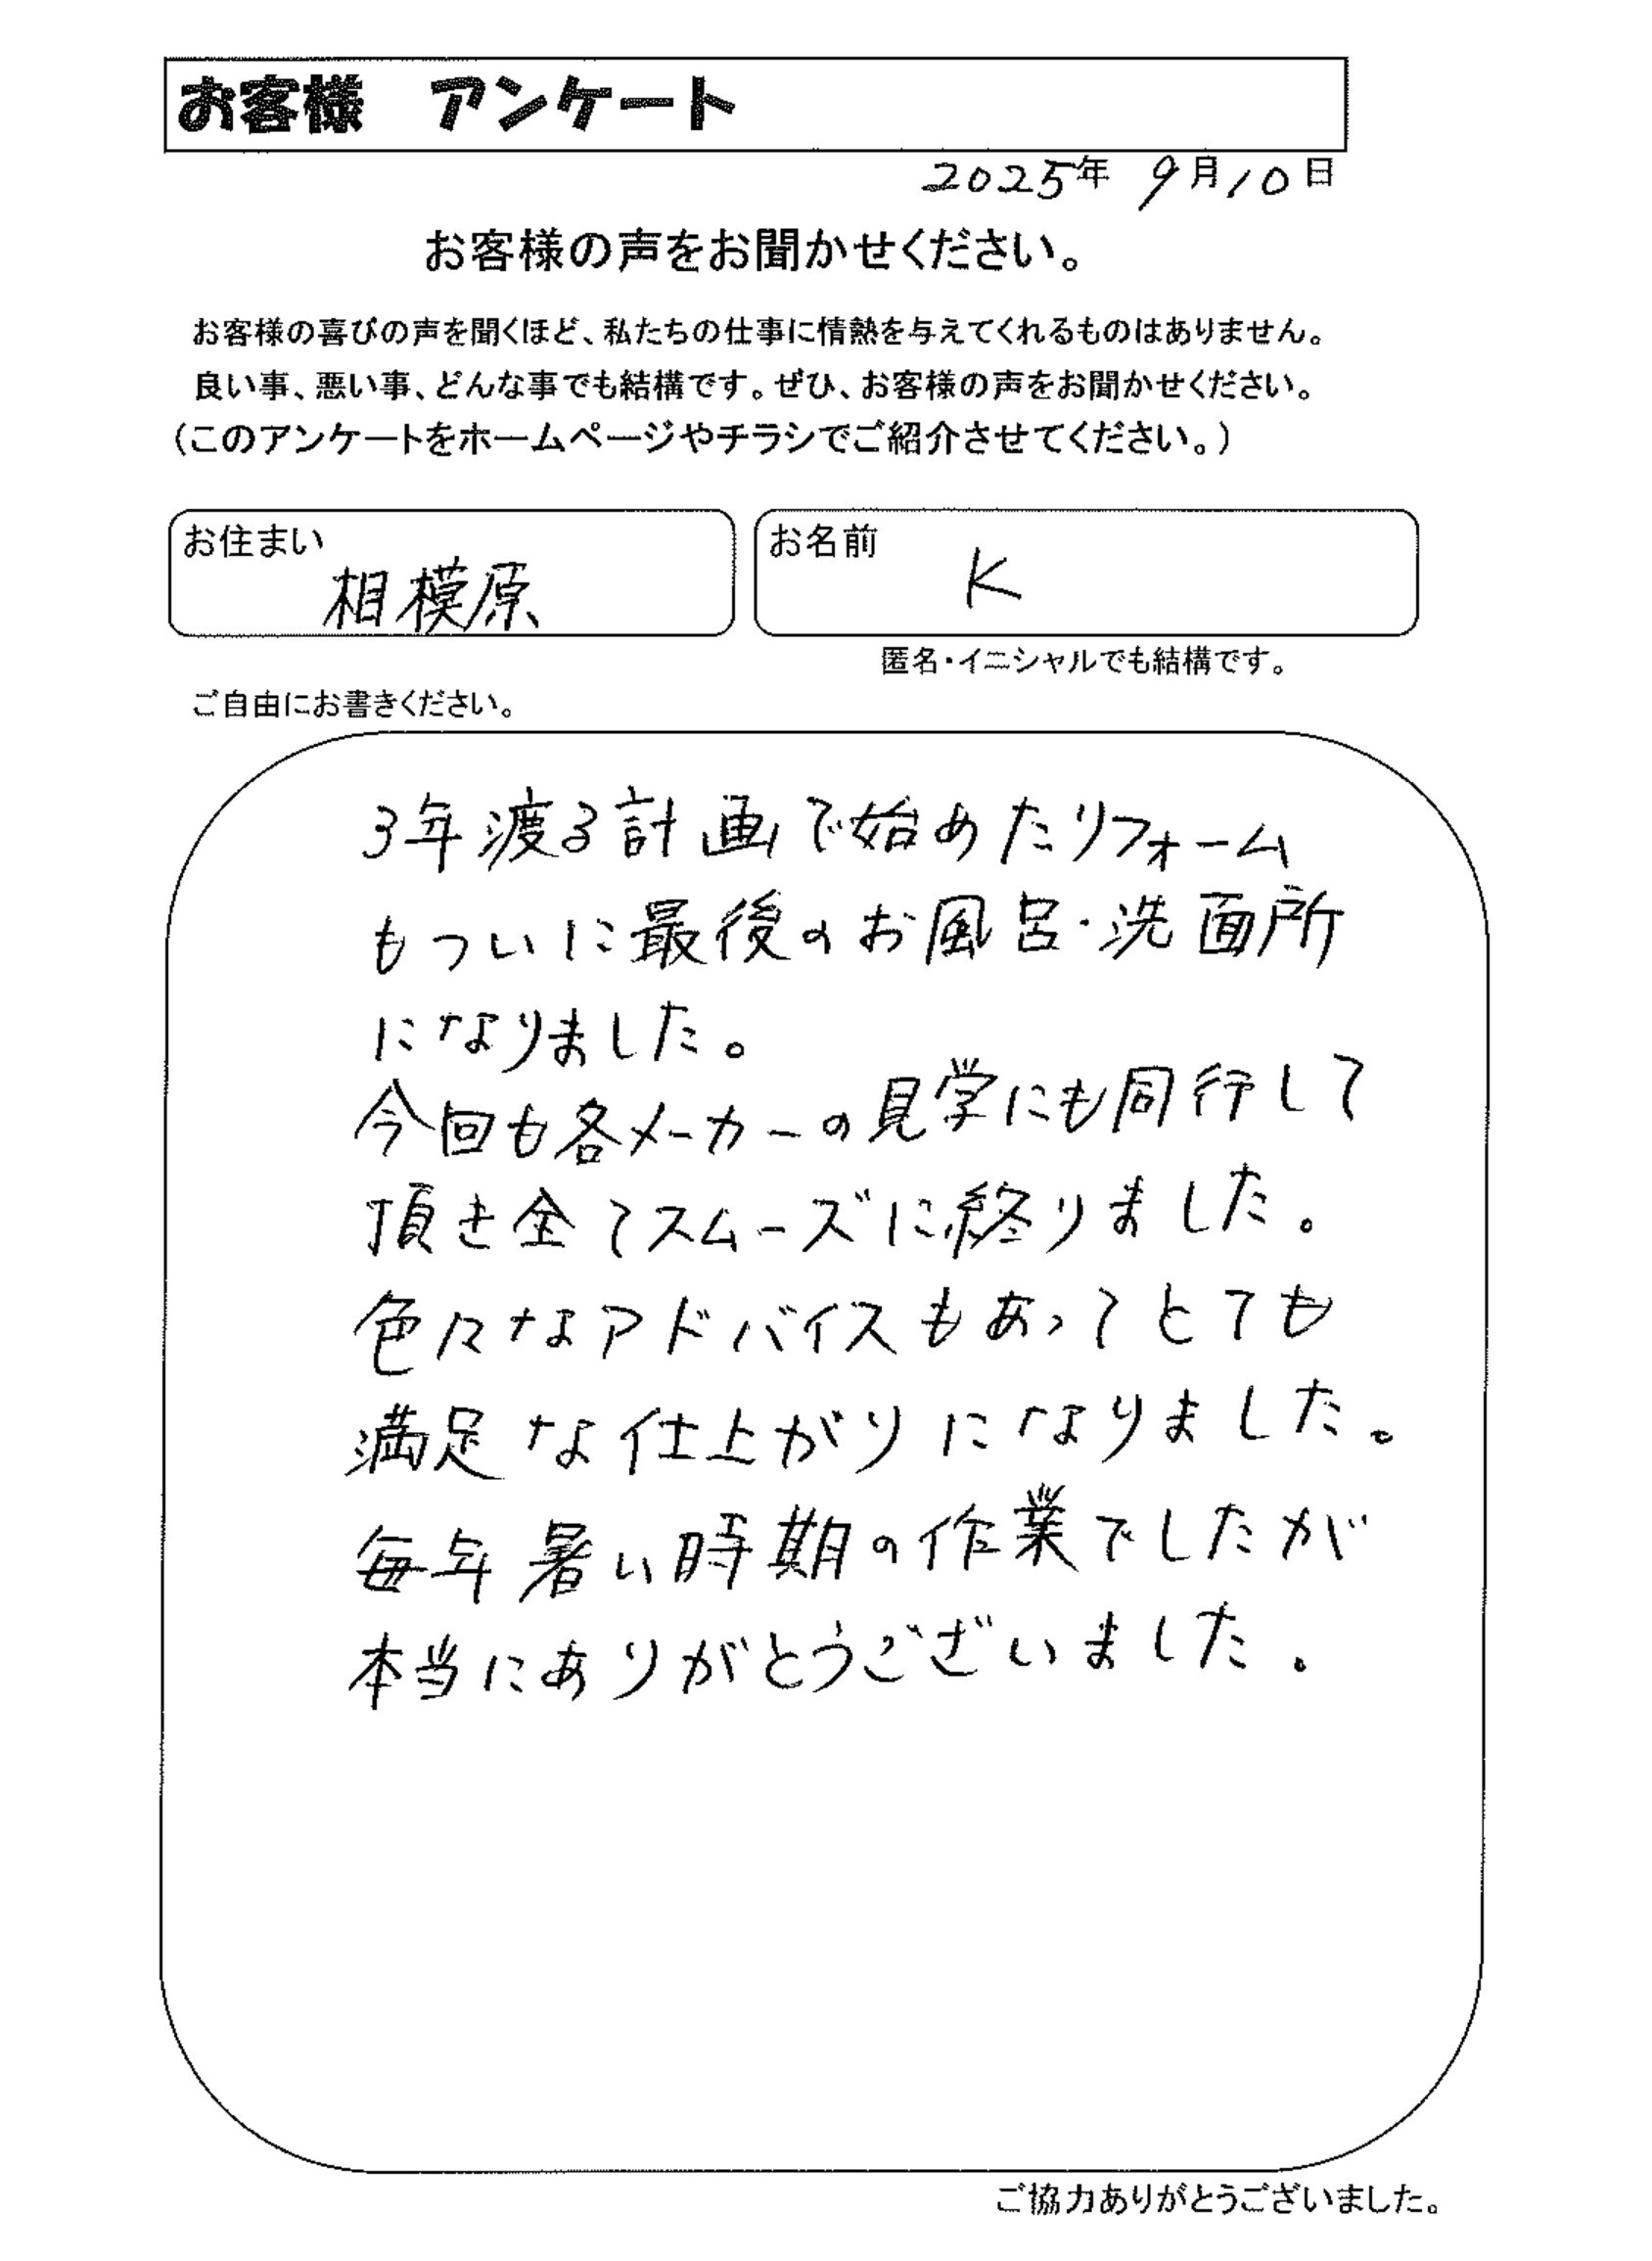 お客様　アンケート
2025年 9月10日
お客様の声をお聞かせください。
お客様の喜びの声を聞くほど、私たちの仕事に情熱を与えてくれるものはありません。
良い事、悪い事、どんな事でも結構です。ぜひ、お客様の声をお聞かせください。
（このアンケートをホームページやチラシでご紹介させてください。）
お住まい 相模原
お名前 K
匿名・イニシャルでも結構です。
ご自由にお書きください。
3年渡る計画で始めたリフォーム
もついに最後のお風呂・洗面所
になりました。
今回も各メーカーの見学にも同行して
頂き全てスムーズに終りました。
色々なアドバイスもあってとても
満足な仕上がりになりました。
毎年暑い時期の作業でしたが
本当にありがとうございました。
ご協力ありがとうございました。